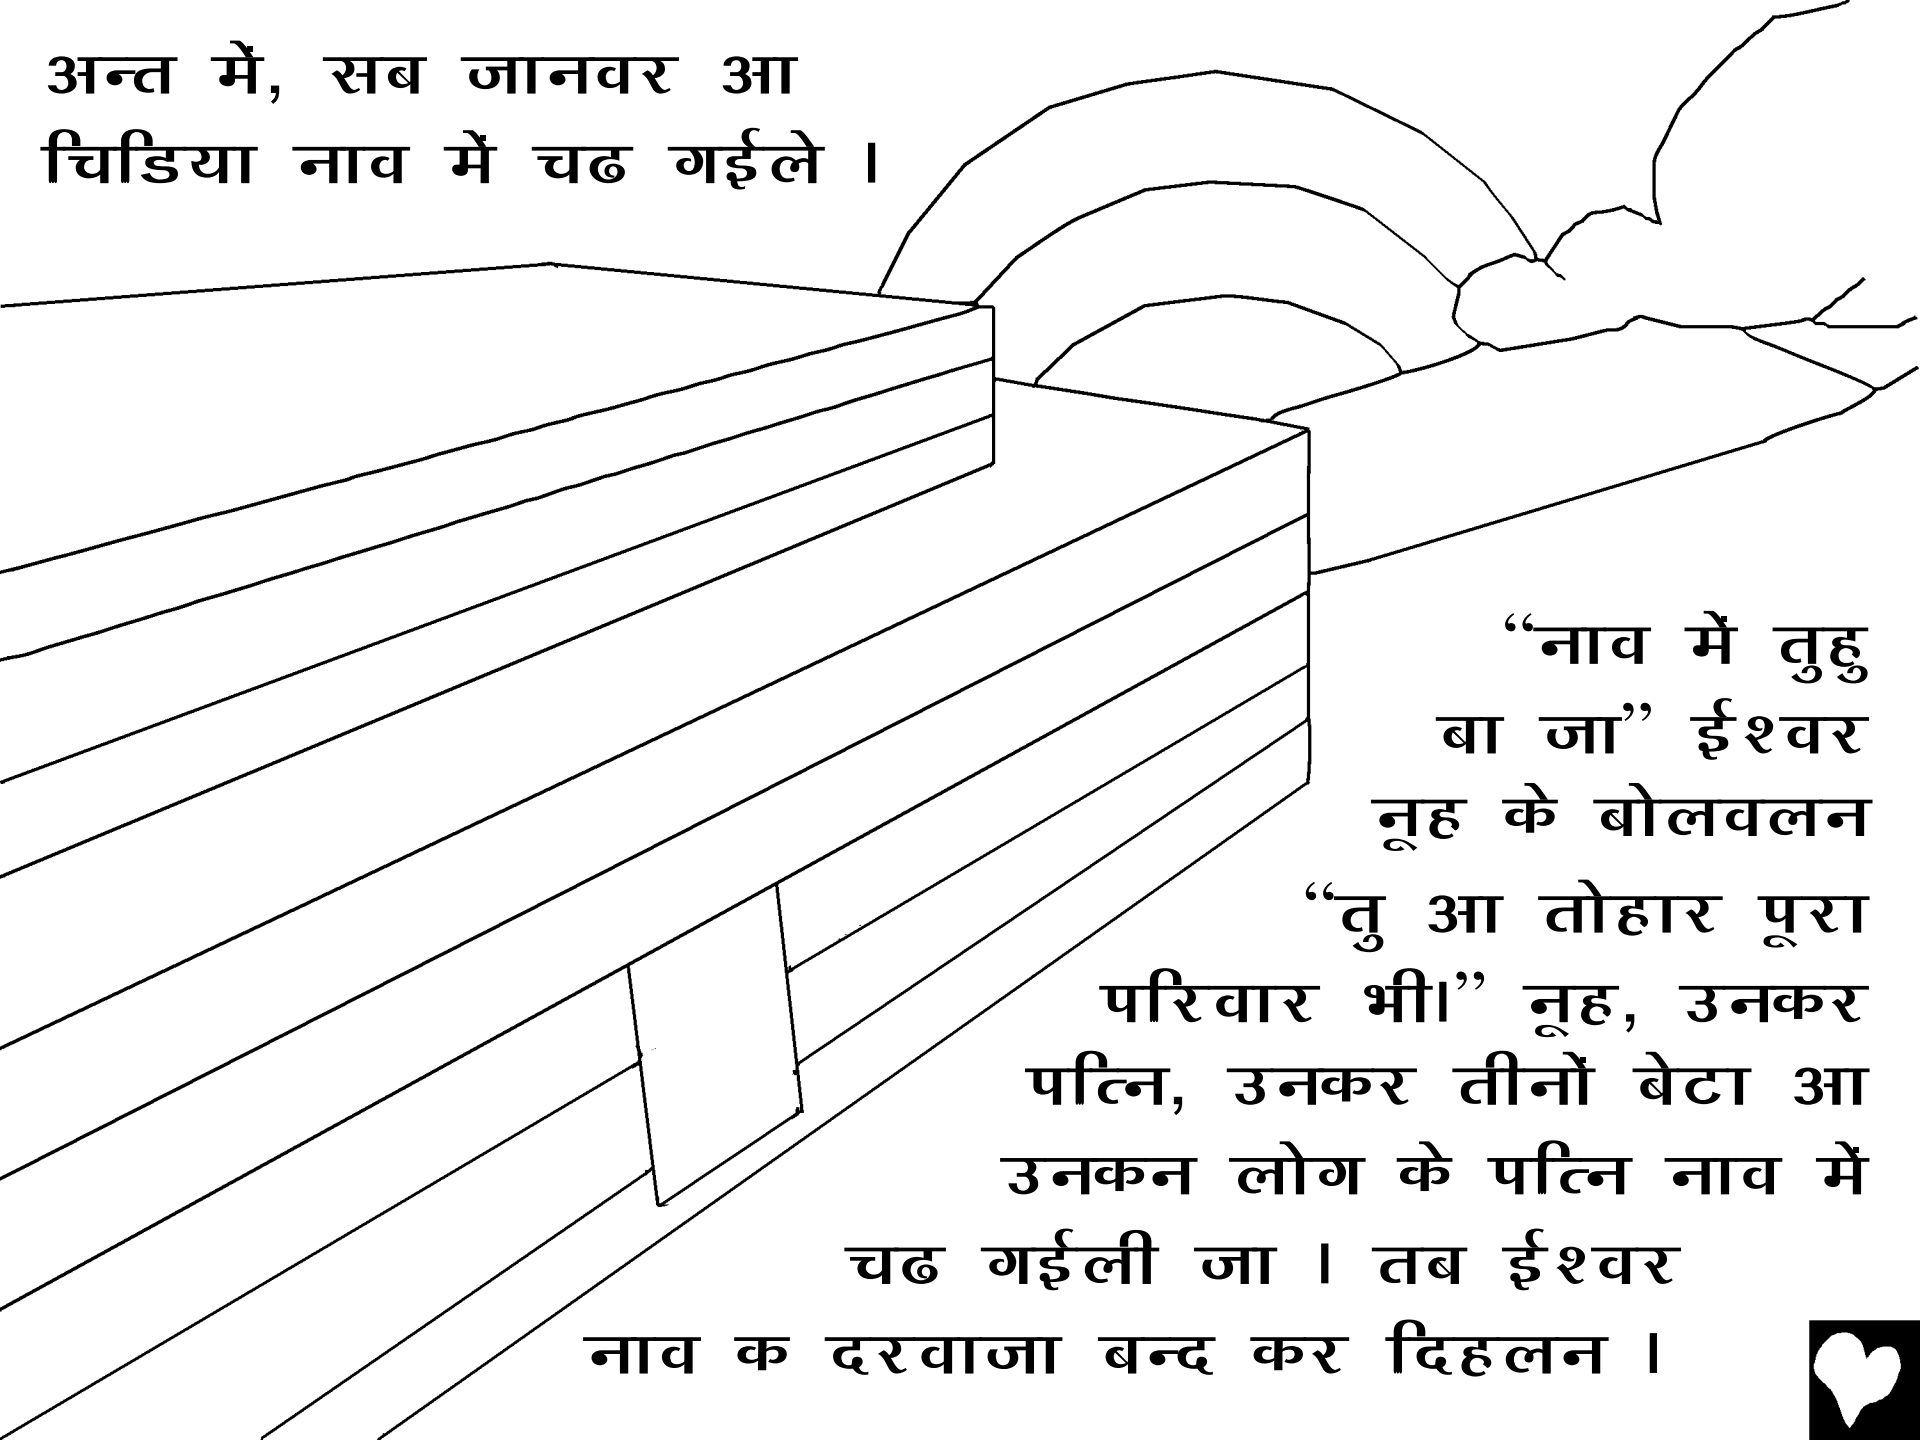 अन्त में, सब जानवर आ
चिडिया नाव में चढ गईले ।
“नाव में तुहु
बा जा” ईश्वर
नूह के बोलवलन
“तु आ तोहार पूरा
परिवार भी।” नूह, उनकर
पत्नि, उनकर तीनों बेटा आ
उनकन लोग के पत्नि नाव में
चढ गईली जा । तब ईश्वर
नाव क दरवाजा बन्द कर दिहलन ।